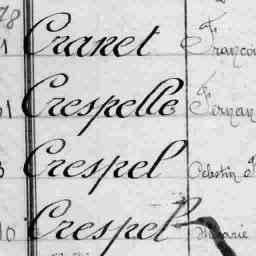 Cranet Françoi
Crespelle Fernan
Crespel Célestin
Crespel Marie